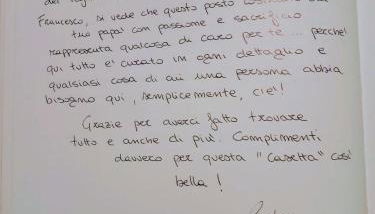 Francesco, si vede che questo posto
tuo papa' con passione e sacrificio
rappresenta qualcosa di caro per te ... perche'
qui tutto e' curato in ogni dettaglio e
qualsiasi cosa di cui una persona abbia
bisogno qui, semplicemente, c'e'!
Grazie per averci fatto trovare
tutto e anche di piu'. Complimenti
davvero per questa "Casetta" così
bella!